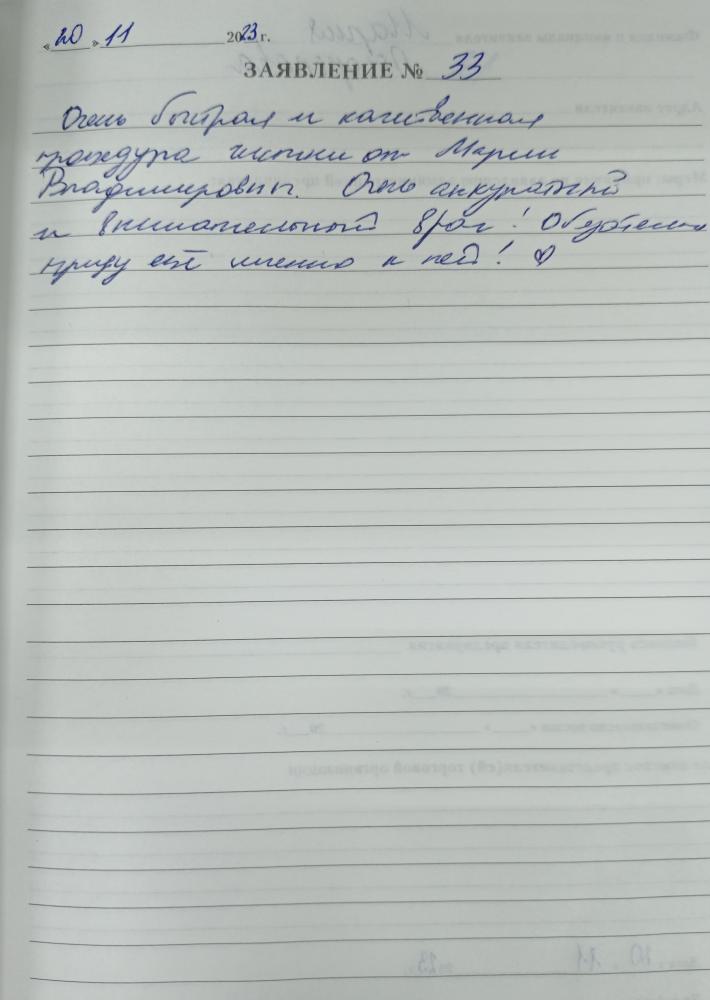 «20» 11 2023 г.
ЗАЯВЛЕНИЕ № 33
Очень быстрая и качественная
процедура чистки от Марии
Владимировны. Очень аккуратный
и внимательный врач! Обязательно
приду ещё именно к ней! ♡